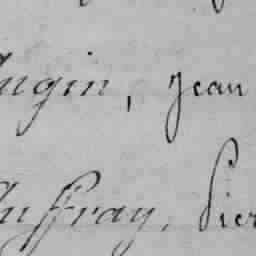 Augin, Jean
Auffray, Pier